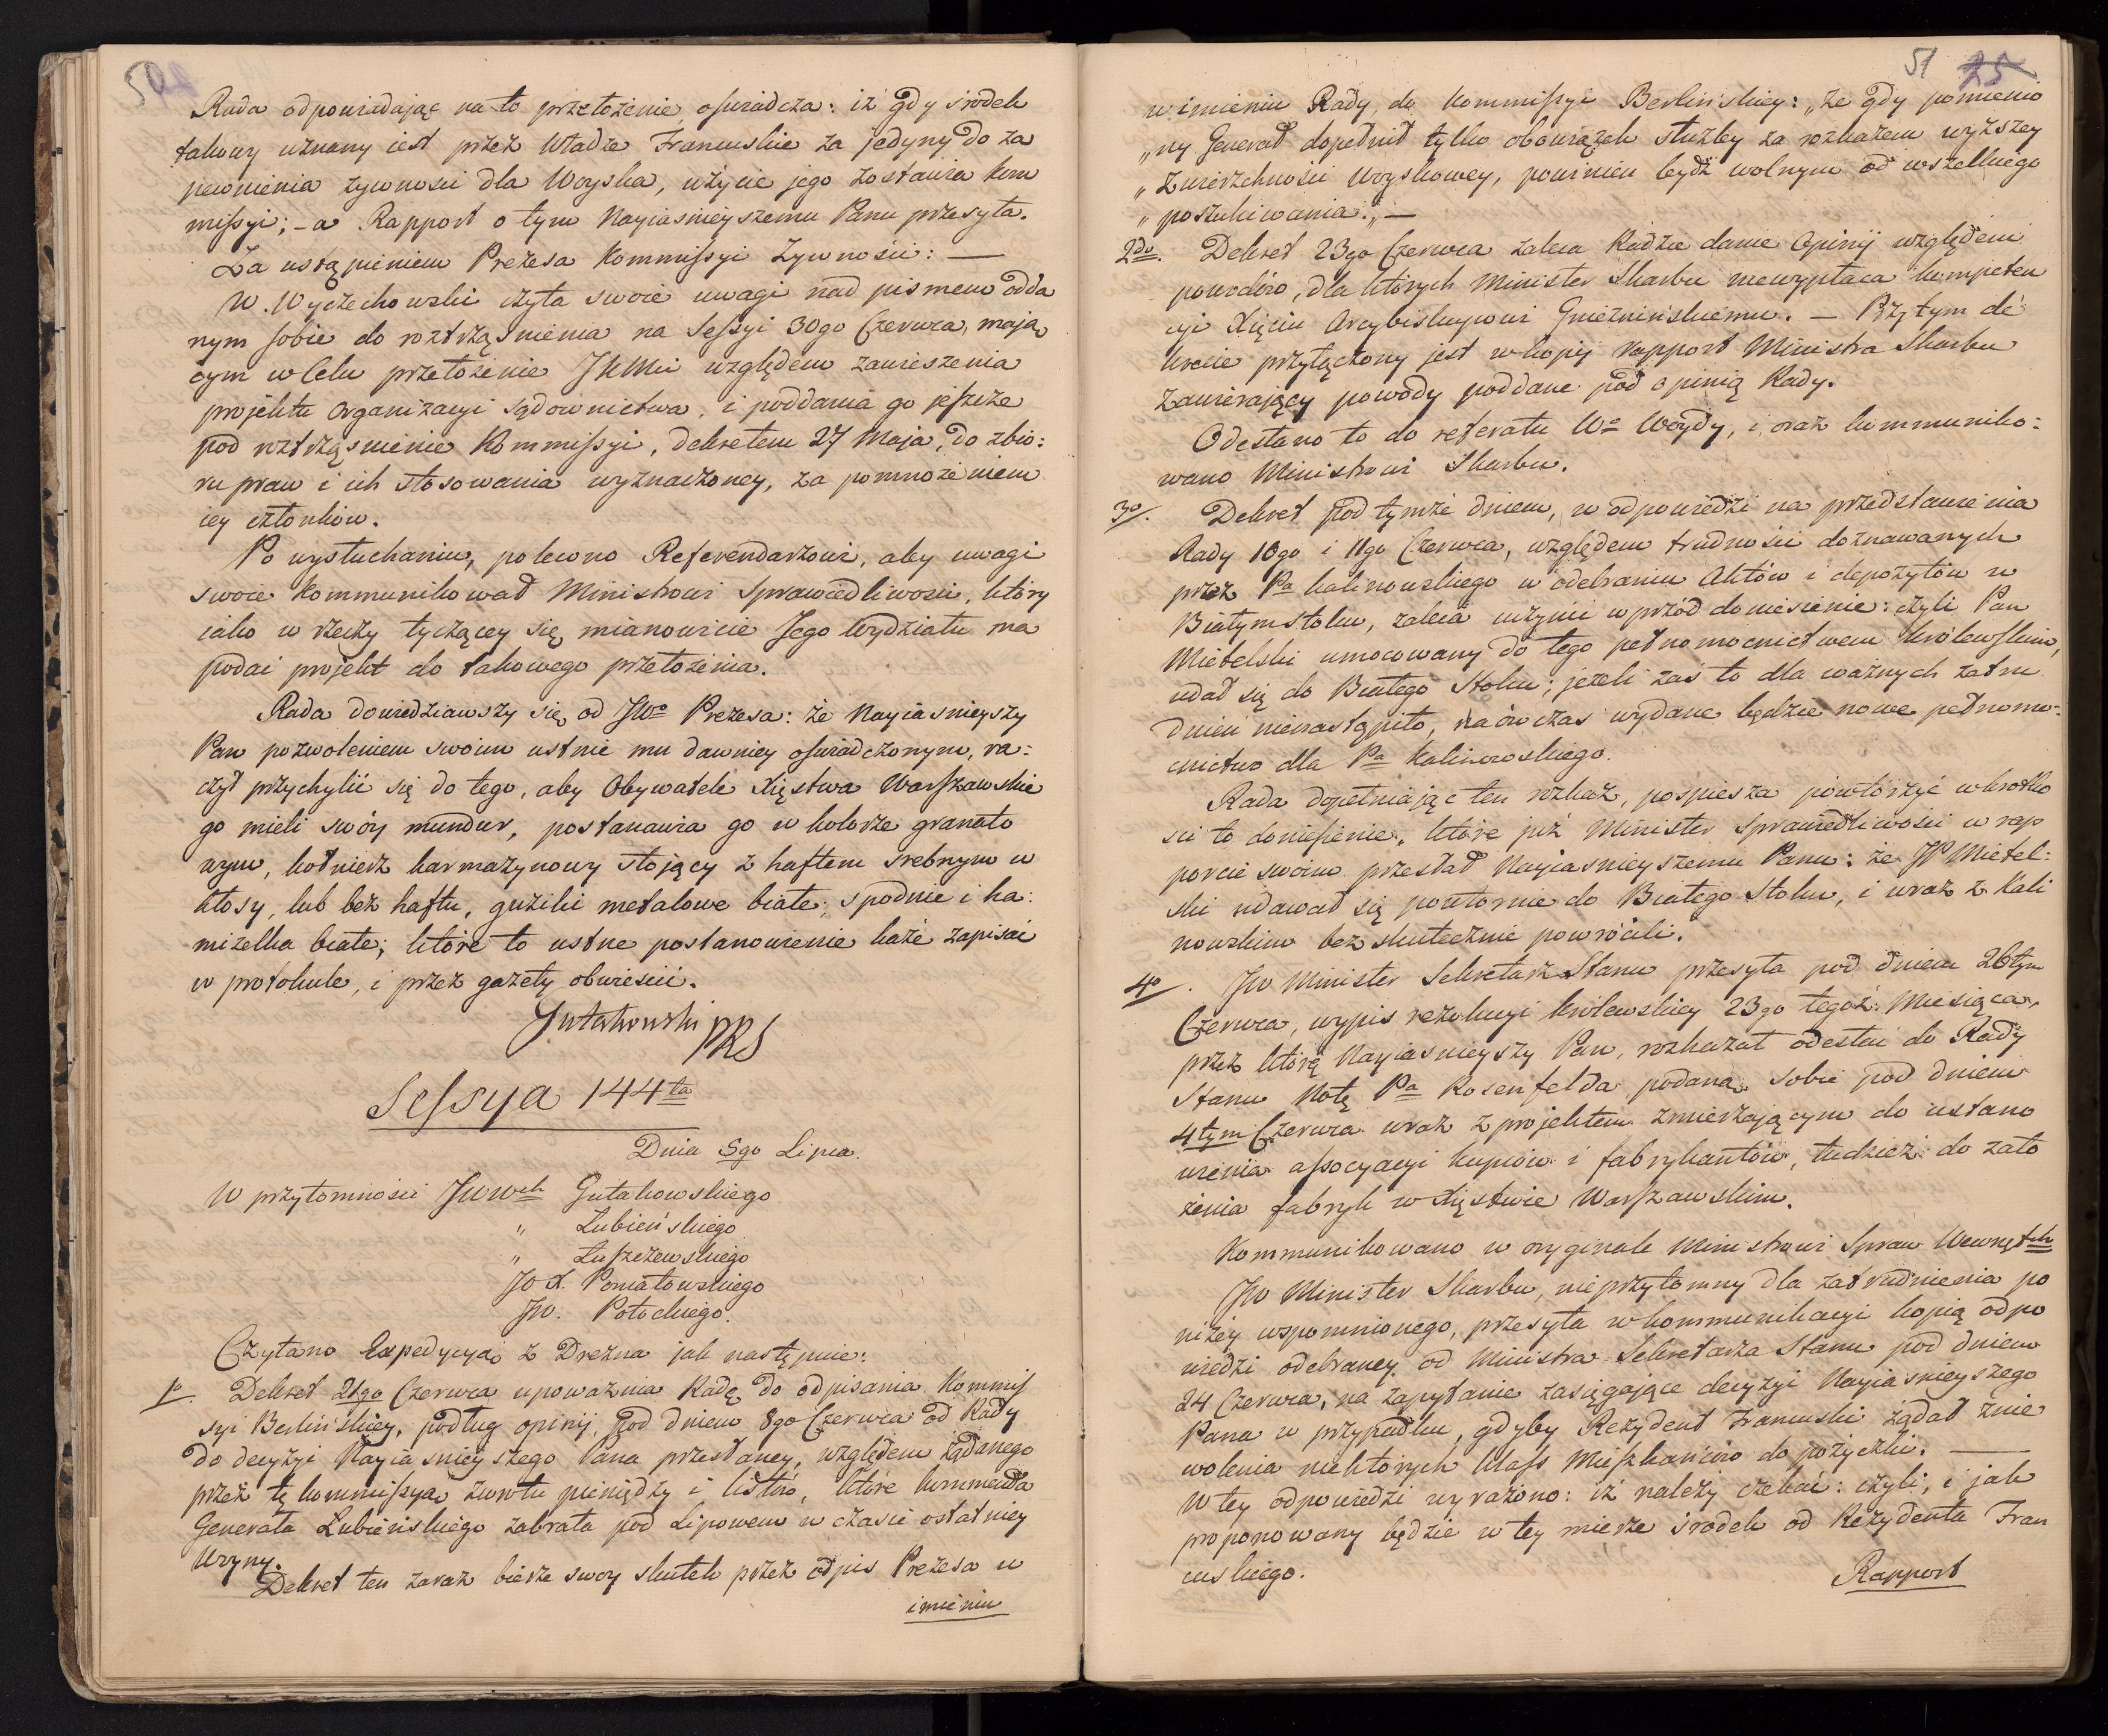 50
Rada odpowiadając na to przełożenie oświadcza: iż gdy środek
takowy uznany iest przez Władze Francuskie za jedyny do za
pewnienia żywności dla Woyska, użycie jego zostawia kom
missyi; - a Rapport o tym Nayiaśnieyszemu Panu przesyła.
Za ustąpieniem Prezesa Kommissyi Żywności: —
W. Wyczechowski czyta swoie uwagi nad pismem odda
nym sobie do roztrząśnienia na Sessyi 30go Czerwca, mają
cym w Celu przełożenie JKMci względem zawieszenia
projektu Organizacyi sądownictwa, i poddania go jeszcze
pod roztrząśnienie Kommissyi, dekretem 27 Maja, do zbio:
ru praw i ich stosowania wyznaczoney, za pomnożeniem
iey członków.
Po wysłuchaniu, polecono Referendarzowi, aby uwagi
swoie kommunikował Ministrowi Sprawiedliwości, który
iako w rzeczy tyczącey się mianowicie Jego Wydziału ma
podać projekt do takowego przełożenia.
Rada dowiedziawszy się od JWo Prezesa: że Nayiaśnieyszy
Pan pozwoleniem swoim ustnie mu dawniey oświadczonym, ra:
czył przychylić się do tego, aby Obywatele Xięstwa Warszawskie
go mieli swóy mundur, postanawia go w kolorze granato
wym, kołnierz karmazynowy stojący z haftem srebrnym w
kłosy, lub bez haftu, guziki metalowe białe; spodnie i ka:
mizelka białe; które to ustne postanowienie każe zapisać
w protokule, i przez gazety obwieścić.
Gutakowski PRS
Sessya 144ta
Dnia 5go Lipca.
W przytomności JWWch Gutakowskiego
" Łubieńskiego
" Łuszczewskiego
JO X. Poniatowskiego
JW. Potockiego.
Czytano Expedycyą z Drezna jak następuie:
1o. Dekret 21go Czerwca upoważnia Radę do odpisania Kommis
syi Berlińskiey, podług opinij, pod dniem 8go Czerwca od Rady
do decyzyi Nayiaśnieyszego Pana przesłaney, względem żądanego
przez tę kommissyą zwrotu pieniędzy i listów, które kommenda
Generała Łubieńskiego zabrała pod Lipowem w czasie ostatniey
Woyny.
Dekret ten zaraz bierze swóy skutek przez odpis Prezesa w
imieniu
51 25
w imieniu Rady do Kommissyi Berlińskiey: „że gdy pomienio
„ny Generał dopełnił tylko obowiązek służby za rozkazem wyższey
„Zwierzchności Woyskowey, powinien bydź wolnym od wszelkiego
„poszukiwania." —
2do. Dekret 23go Czerwca zaleca Radzie danie Opinij względem
powodów, dla których Minister Skarbu niewypłaca kompeten
cyi Xięciu Arcybiskupowi Gnieźnińskiemu. — Przy tym de
krecie przyłączony jest w kopij rapport Ministra Skarbu
zawieraiący powody poddane pod opinią Rady.
Odesłano to do referatu Wo Woydy, i oraz kommuniko:
wano Ministrowi Skarbu.
3o. Dekret pod tymże dniem, w odpowiedzi na przedstawienia
Rady 10go i 11go Czerwca, względem trudności doznawanych
przez Pa Kalinowskiego w odebraniu Aktów i depozytów w
Białymstoku, zaleca uczynić wprzód doniesienie: czyli Pan
Mietelski umocowany do tego pełnomocnictwem Królewskim,
udał się do Białego Stoku; jeżeli zaś to dla ważnych zatru
dnień nienastąpiło, naówczas wydane będzie nowe pełnomo:
cnictwo dla Pa Kalinowskiego.
Rada dopełniając ten rozkaz, pospiesza powtórzyć w krótko
ści to doniesienie, które już Minister Sprawiedliwości w rap
porcie swoim przesłał Nayiaśnieyszemu Panu: że JP Mietel:
ski udawał się powtornie do Białego Stoku, i wraz z Kali
nowskim bezskutecznie powrócili.
4o. JW Minister Sekretarz Stanu przesyła pod dniem 26tym
Czerwca, wypis rezolucyi królewskiey 23go tegoż Miesiąca,
przez którą Nayiaśnieyszy Pan, rozkazał odesłać do Rady
Stanu Notę Pa Rosenfelda podaną sobie pod dniem
4tym Czerwca wraz z projektem zmierzającym do ustano
wienia assocyacyi kupców i fabrykantów, tudzież do zało
żenia fabryk w Xięstwie Warszawskim.
Kommunikowano w oryginale Ministrowi Spraw Wewnętrzch
JW Minister Skarbu, nieprzytomny dla zatrudnienia po
niżey wspomnionego, przesyła w kommunikacyi kopią odpo
wiedzi odebraney od Ministra Sekretarza Stanu pod dniem
24 Czerwca, na zapytanie zasięgające decyzyi Nayiaśnieyszego
Pana w przypadku, gdyby Rezydent Francuski żądał znie
wolenia niektórych klass Mieszkańców do pożyczki. —
W tey odpowiedzi wyrażono: iż należy czekać: czyli, i jak
proponowany będzie w tey mierze środek od Rezydenta Fran
cuskiego.
Rapport